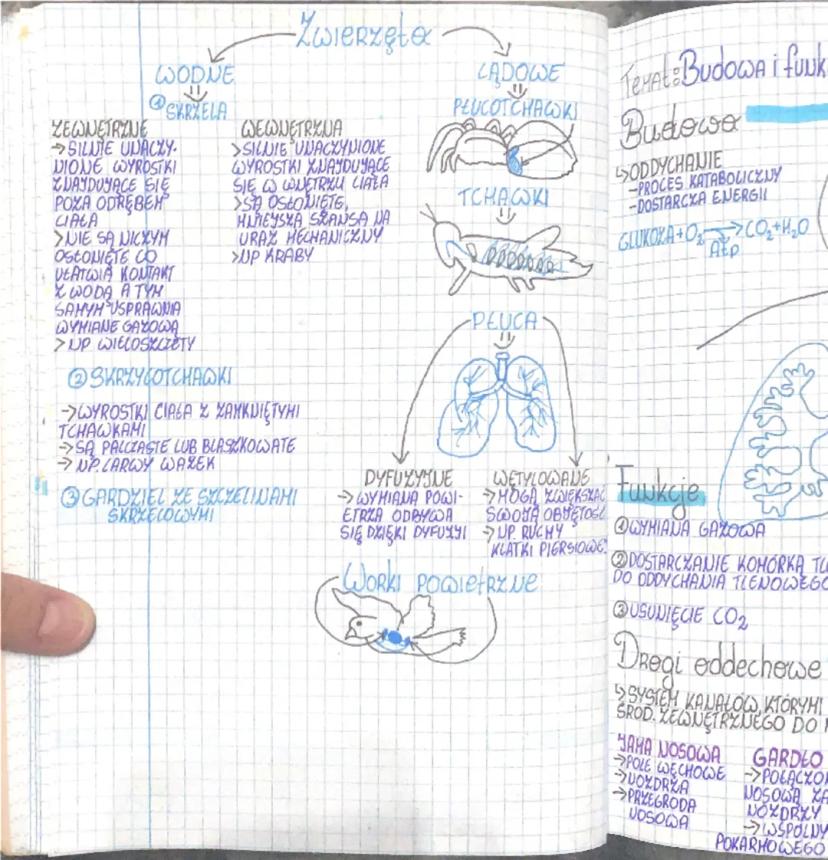 Zwierzęta
WODNE
① SKRZELA
ZEWNĘTRZNE
→ SILNIE UNACZY-
NIONE WYROSTKI
ZNAJDUJĄCE SIĘ
POZA ODRĘBEM
CIAŁA
> NIE SĄ NICZYM
OSŁONIĘTE CO
UŁATWIA KONTAKT
Z WODĄ A TYM
SAMYM USPRAWNIA
WYMIANĘ GAZOWĄ
> NP WIELOSZCZETY
WEWNĘTRZNA
> SILNIE UNACZYNIONE
WYROSTKI ZNAJDUJĄCE
SIĘ W WNĘTRZU CIAŁA
> SĄ OSŁONIĘTE,
MNIEJSZA SZANSA NA
URAZ MECHANICZNY
> NP KRABY
② SKRZYGOTCHAWKI
→ WYROSTKI CIAŁA Z ZAMKNIĘTYMI
TCHAWKAMI
→ SĄ PALCZASTE LUB BLASZKOWATE
→ NP. LARWY WAŻEK
③ GARDZIEL ZE SZCZELINAMI
SKRZELOWYMI
LĄDOWE
PŁUCOTCHAWKI
TCHAWKI
PŁUCA
DYFUZYJNE
→ WYMIANA POWI-
ETRZA ODBYWA
SIĘ DZIĘKI DYFUZYJI
WĘTYLOWANE
→ MOGĄ ZWIĘKSZAĆ
SWOJĄ OBJĘTOŚĆ
→ NP. RUCHY
KLATKI PIERSIOWE
Worki powietrzne
Temat: Budowa i funk
Budowa
↳ ODDYCHANIE
- PROCES KATABOLICZNY
- DOSTARCZA ENERGII
GLUKOZA + O₂ → CO₂ + H₂O
ATP
Funkcje
① WYMIANA GAZOWA
② DOSTARCZANIE KOMÓRKĄ TL
DO ODDYCHANIA TLENOWEGO
③ USUNIĘCIE CO₂
Drogi oddechowe
↳ SYSTEM KANAŁÓW, KTÓRYMI
ŚROD. ZEWNĘTRZNEGO DO
JAMA NOSOWA
→ POLE WĘCHOWE
→ NOZDRZA
→ PRZEGRODA
NOSOWA
GARDŁO
→ POŁĄCZO
NOSOWĄ ZA
NOZDRZY
→ WSPÓLNY
POKARMOWEGO